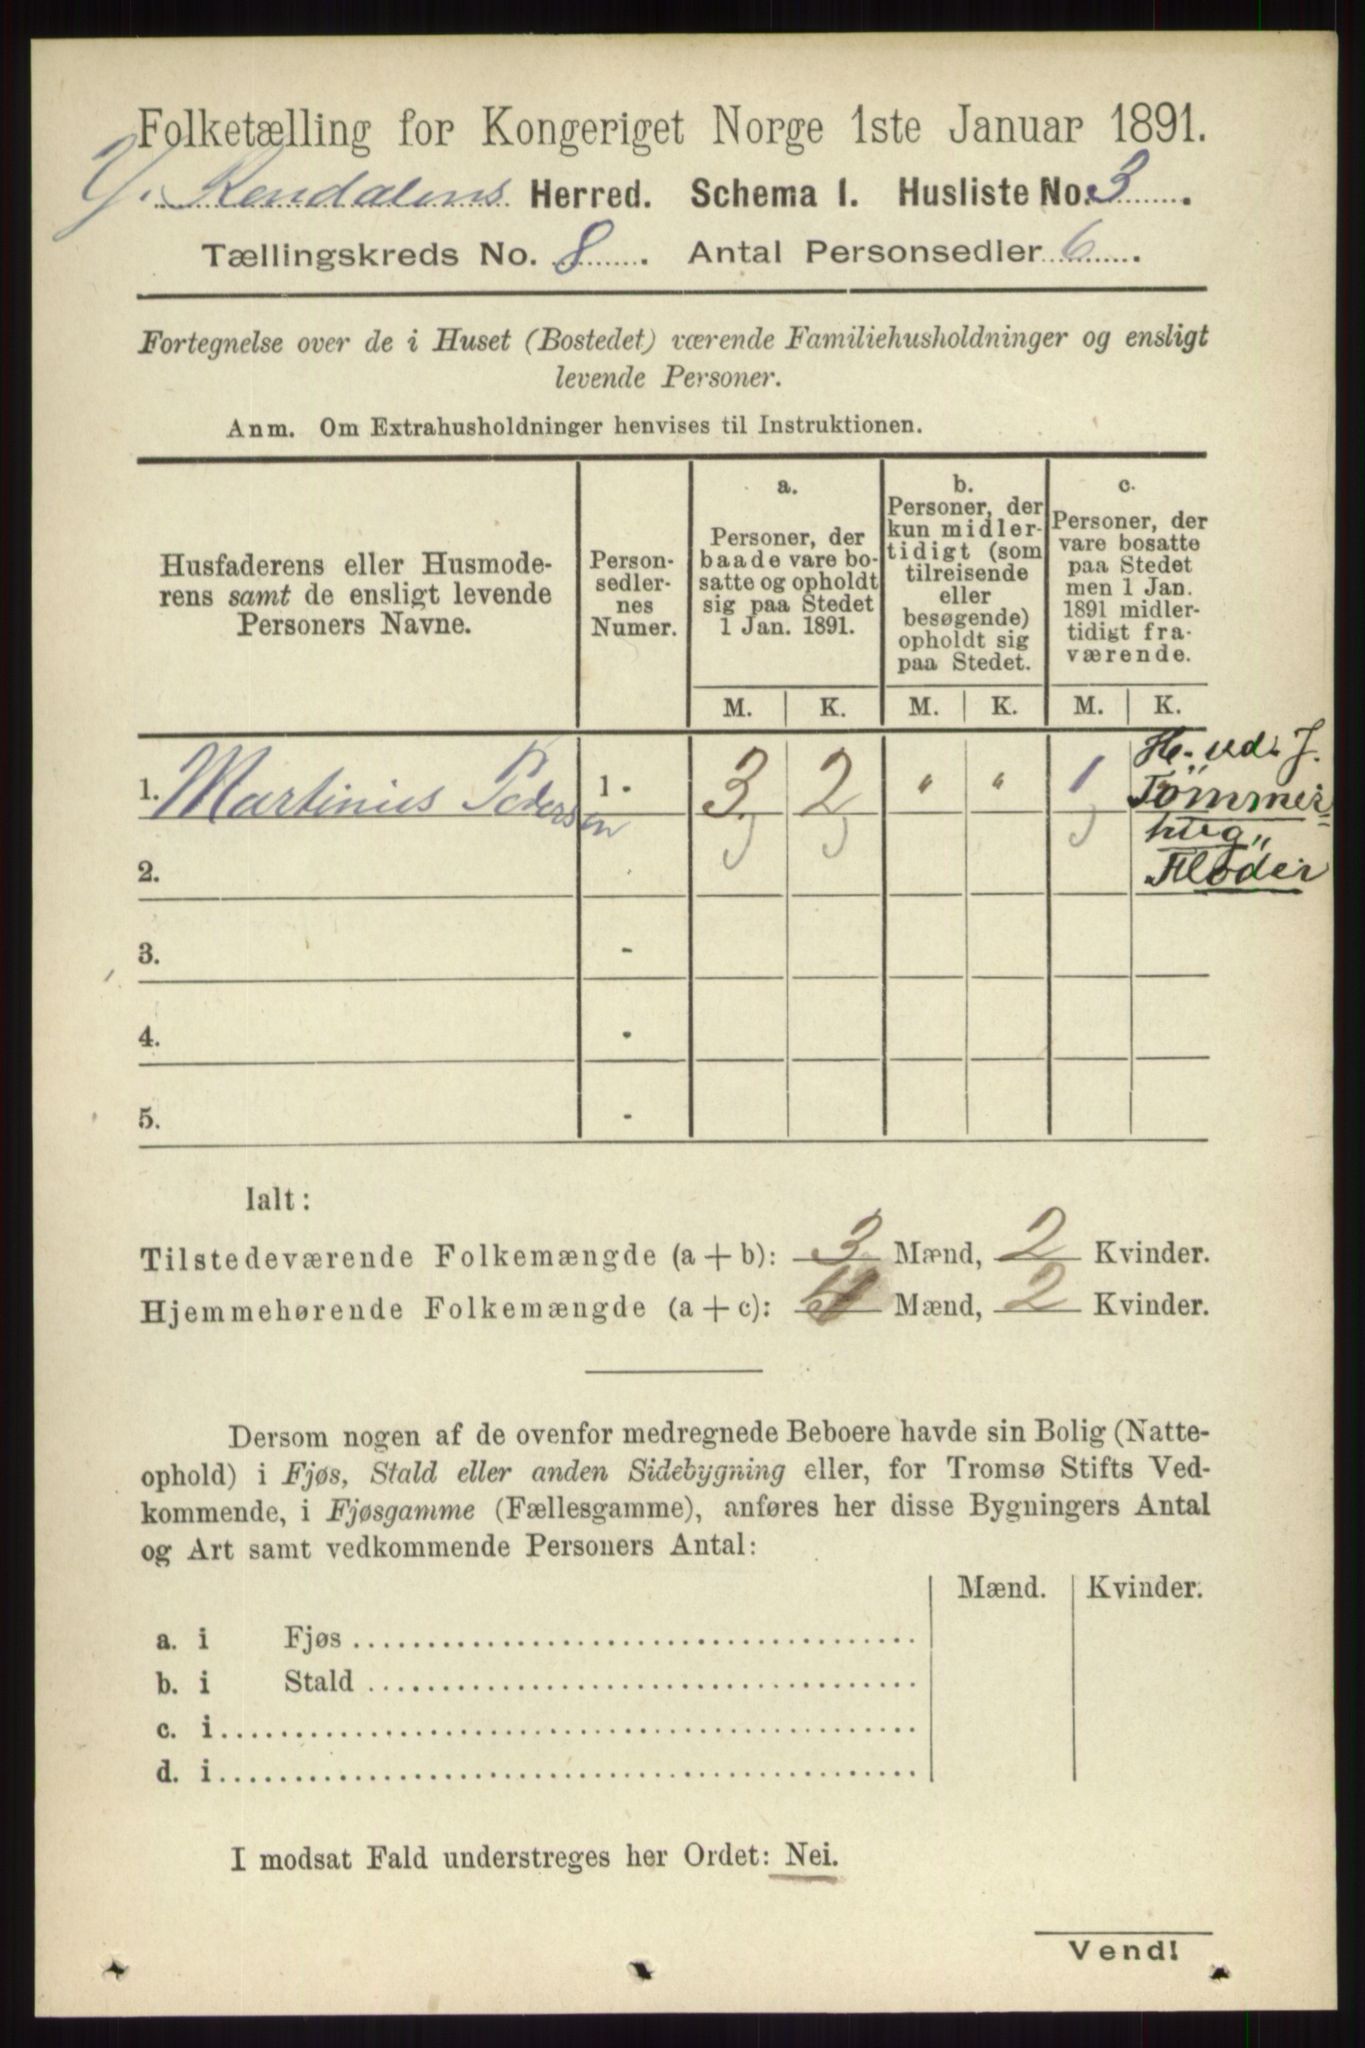 Folketælling for Kongeriget Norge 1ste Januar 1891.
Y. Rendalens Herred. Schema I. Husliste No. 3.
Tællingskreds No. 8. Antal Personsedler 6.
Fortegnelse over de i Huset (Bostedet) værende Familiehusholdninger og ensligt
levende Personer.
Anm. Om Extrahusholdninger henvises til Instruktionen.
Husfaderens eller Husmode-
rens samt de ensligt levende
Personers Navne.
Person-
sedler-
nes
Numer.
a.
Personer, der
baade vare bo-
satte og opholdt
sig paa Stedet
1 Jan. 1891.
b.
Personer, der
kun midler-
tidigt (som
tilreisende
eller
besøgende)
opholdt sig
paa Stedet.
c.
Personer, der
vare bosatte
paa Stedet
men 1 Jan.
1891 midler-
tidigt fra-
værende.
M. K. M. K. M. K.
1. Martinius Pedersen 1 - 3 2 " " 1
Tömmer
hug"
Flöder
2.
3. -
4. -
5. -
Ialt:
Tilstedeværende Folkemængde (a + b): 3 Mænd, 2 Kvinder.
Hjemmehørende Folkemængde (a + c): 4 Mænd, 2 Kvinder.
Dersom nogen af de ovenfor medregnede Beboere havde sin Bolig (Natte-
ophold) i Fjøs, Stald eller anden Sidebygning eller, for Tromsø Stifts Ved-
kommende, i Fjøsgamme (Fællesgamme), anføres her disse Bygningers Antal
og Art samt vedkommende Personers Antal:
Mænd. Kvinder.
a. i Fjøs
b. i Stald
c. i
d. i
I modsat Fald understreges her Ordet: Nei.
Vend!